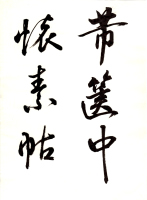 芾篋中
懷素帖